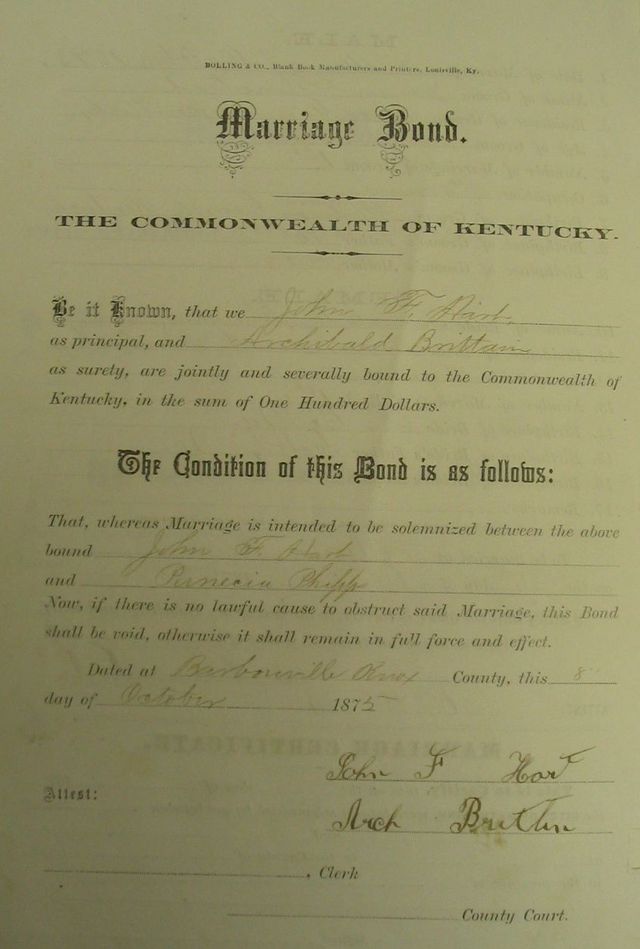 BOLLING & CO., Blank Book Manufacturers and Printers, Louisville, Ky.
Marriage Bond.
THE COMMONWEALTH OF KENTUCKY.
Be it Known, that we John F. Hart,
as principal, and Archibald Brittain
as surety, are jointly and severally bound to the Commonwealth of
Kentucky, in the sum of One Hundred Dollars.
The Condition of this Bond is as follows:
That, whereas Marriage is intended to be solemnized between the above
bound John F. Hart
and
Now, if there is no lawful cause to obstruct said Marriage, this Bond
shall be void, otherwise it shall remain in full force and effect.
Dated at Barbourville Knox County, this 8"
day of October 1875
John F Hart
Attest:
Arch Brittin
, Clerk
County Court.